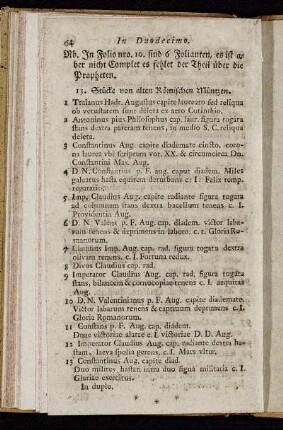 64 In Duodecimo.
Nb. In Folio nro. 10. sind 6 Folianten, es ist a-
ber nicht Complet es fehlet der Theil über die
Propheten.
13. Stücke von alten Römischen Müntzen.
1 Traianus Hadr. Augustus capite laureato sed reliqua
ob vetustatem sunt deleta ex aere Corinthio.
2 Antoninus pius Philosophus cap. laur. figura togata
stans dextra pateram tenens, in medio S. C. reliqua
deleta.
3 Constantinus Aug. capite diademate cincto, coro-
na laurea vbi scriptum vot. XX. & circumcirca Dn.
Constantini Max. Aug.
4 D. N. Constantius p. F. aug. caput diadem. Miles
galeatus hasta equitem deturbans c. I. Felix temp.
reparatio.
5 Imp. Claudius Aug. capite radiante figura togata
ad columnam stans dextra bacellum tenens c. I.
Providentia Aug.
6 D. N. Valens p. F. Aug. cap. diadem. victor laba-
rum tenens & deprimens in labero. c. I. Gloria Ro-
manorum.
7 Claudius Imp. Aug. cap. rad. figura togata dextra
olivam tenens. c. I. Fortuna redux.
8 Divos Claudius cap. rad.
9 Imperator Claudius Aug. cap. rad. figura togata
stans, bilancem & cornucopiae tenens c. I. aequitas
Aug.
10 D. N. Valentinianus p. F. Aug. capite diademate.
Victor labarum tenens & captivum deprimens c. I.
Gloria Romanorum.
11 Constans p. F. Aug. cap. diadem.
Duae victoriae alatae c. I. victoriae D. D. Aug.
12 Imperator Claudius Aug. cap. radiante dextra ha-
stam, laeva spolia gerens, c. I. Mars vltor.
13 Constantinus Aug. capite diad.
Duo milites hastati intra duo signa militaria c. I.
Gloriae exercitus.
In duplo.